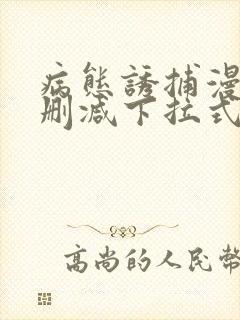 病態誘捕漫
删减下拉式
高尚的人民幣